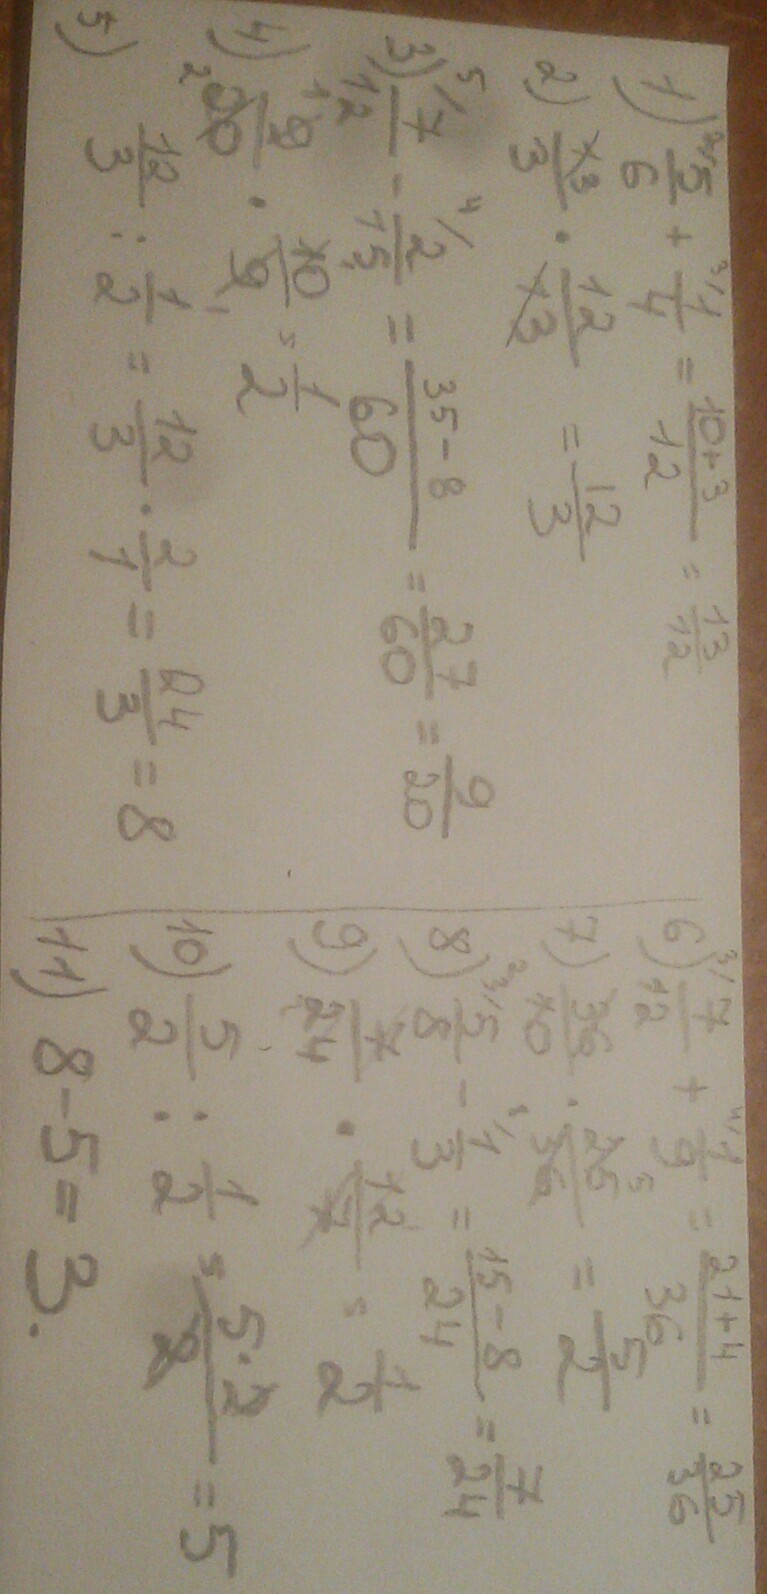 1) 2/5/6 + 3/1/4 = 10+3/12 = 13/12
2) 13/3 · 12/13 = 12/3
3) 5/7/12 - 4/2/15 = 35-8/60 = 27/60 = 9/20
4) 9/20 · 10/9 = 1/2
5) 12/3 : 1/2 = 12/3 · 2/1 = 24/3 = 8
6) 3/7/12 + 4/1/9 = 21+4/36 = 25/36
7) 36/10 · 25/36 = 5/2
8) 3/5/8 - 8/1/3 = 15-8/24 = 7/24
9) 7/24 · 12/7 = 1/2
10) 5/2 : 1/2 = 5·2/2 = 5
11) 8-5=3.